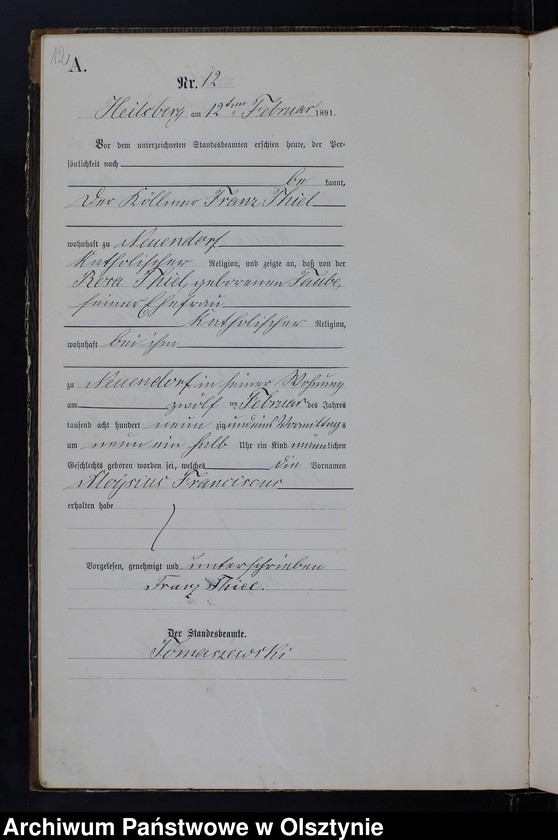 12
A.
Nr. 12
Heilsberg am 12ten Februar 1891.
Vor dem unterzeichneten Standesbeamten erschien heute, der Per-
sönlichkeit nach
be kannt,
Der Köllmer Franz Thiel
wohnhaft zu Neuendorf
Katholischer Religion, und zeigte an, daß von der
Rosa Thiel, geborenen Taube,
seiner Ehefrau
Katholischer Religion,
wohnhaft bei ihm
zu Neuendorf in seiner Wohnung
am zwölf ten Februar des Jahres
tausend acht hundert neun zig und eins Vormittags
um neun ein halb Uhr ein Kind männlichen
Geschlechts geboren worden sei, welches die Vornamen
Aloysius Franciscus
erhalten habe
Vorgelesen, genehmigt und unterschrieben
Franz Thiel.
Der Standesbeamte.
Tomaszewski
Archiwum Państwowe w Olsztynie